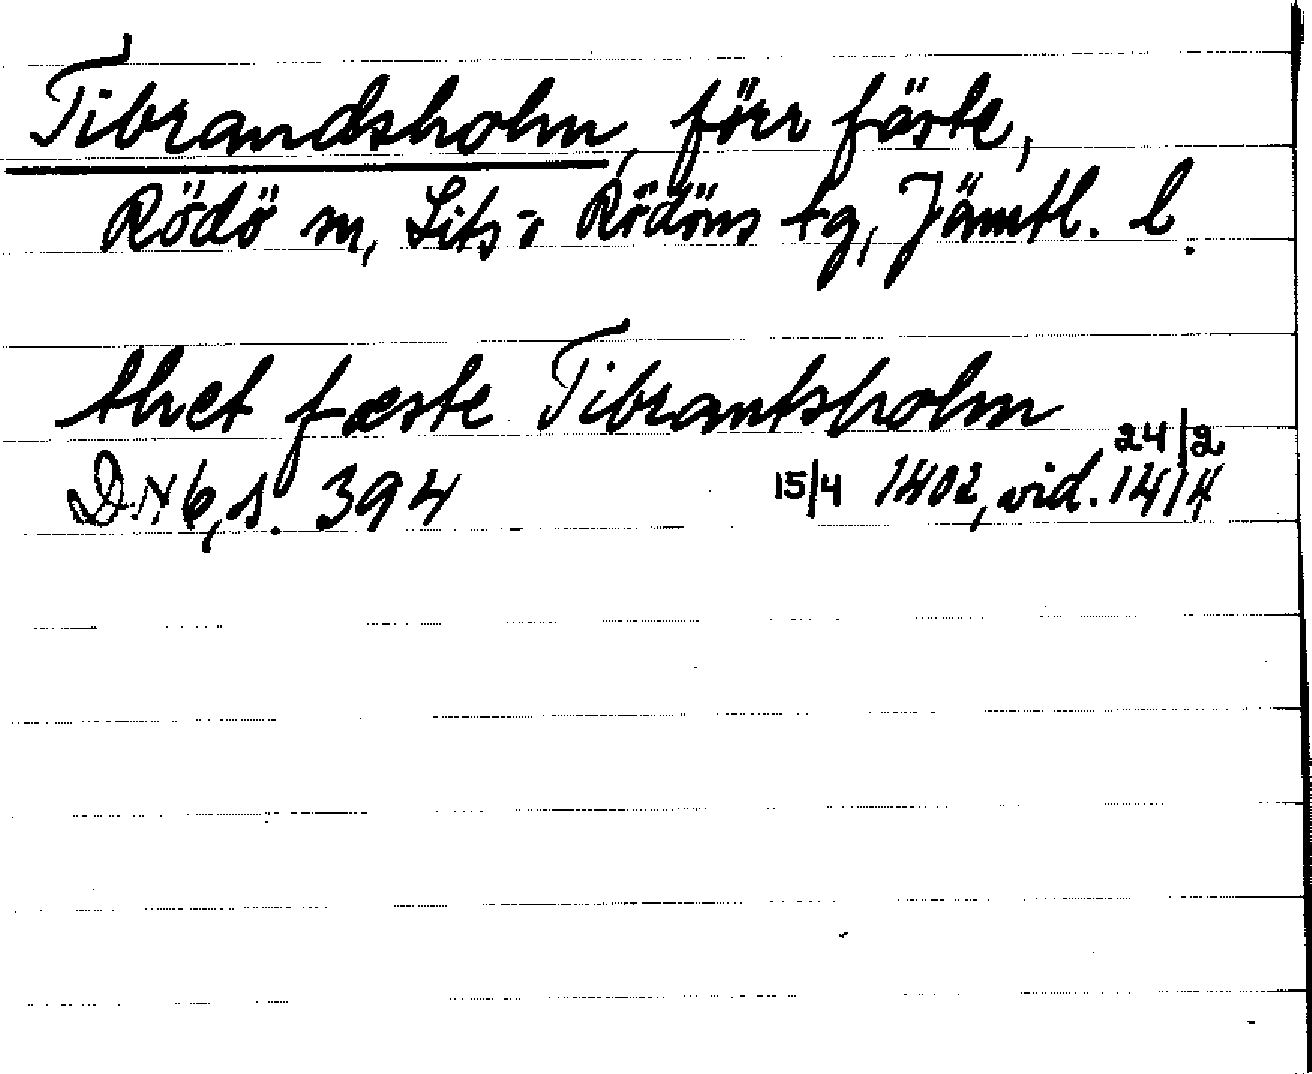 Tibrandsholm, förr fäste,
Rödö sn, Lits- o Rödöns tg, Jämtl. l.
thet fæste Tibrantsholm
DN 6, s. 394 15/4 1402, vid. 24/2 1414